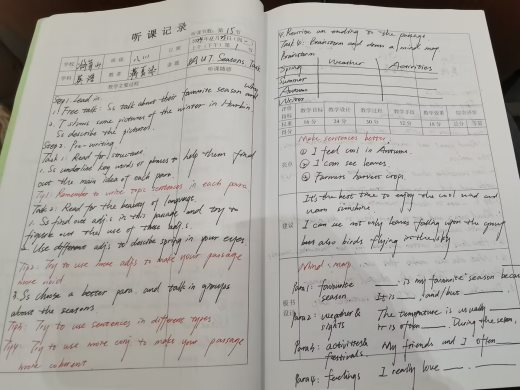 听课记录
听课节数:第 15 节
学校
班级
八11
日期
学科 英语
教师
课题
8A U7 Seasons Task
教学主要过程
听课随感
Step 1 Lead in
1. Free talk: Ss talk about their favourite season and why
2. T shows some pictures of the winter in Harbin
Ss describe the pictures.
Step 2. Pre-writing
Task 1. Read for structure.
1. Ss underline key words or phrases to help them find
out the main idea of each para.
Tip 1. Remember to write topic sentences in each para
Task 2. Read for the beauty of language.
1. Ss find out adjs in this passage and try to
figure out the use of these adjs.
2. Use different adjs to describe spring in your eyes
Tip 2. Try to use more adjs to make your passage
more vivid
3. Ss choose a better para. and talk in groups
about the seasons
Tip 3. Try to use sentences in different types
Tip 4. Try to use more conj to make your passage
more coherent
4. Rewrite an ending to the passage
Task 4. Brainstorm and draw a mind map
Brainstorm
Weather Activities
Spring
Summer
Autumn
Winter
评价指标 教学目标 教学设计 教学过程 教学手段 教学效果 综合评价
权重
得分
Make sentences better
① I feel cool in Autumn.
② I can see leaves.
③ Farmers harvest crops.
建议
It's the best time to enjoy the cool wind and
warm sunshine
I can see not only leaves falling upon the ground
but also birds flying in the sky
Mind-map
板书设计
Para 1: favourite season
___ is my favourite season because
It is ___ and / but ___.
Para 2: weather & sights
The temperature is usually ___
It is often ___. During the season,
Para 3: activities & festivals
My friends and I often ___
Para 4: feelings
I really love ___.